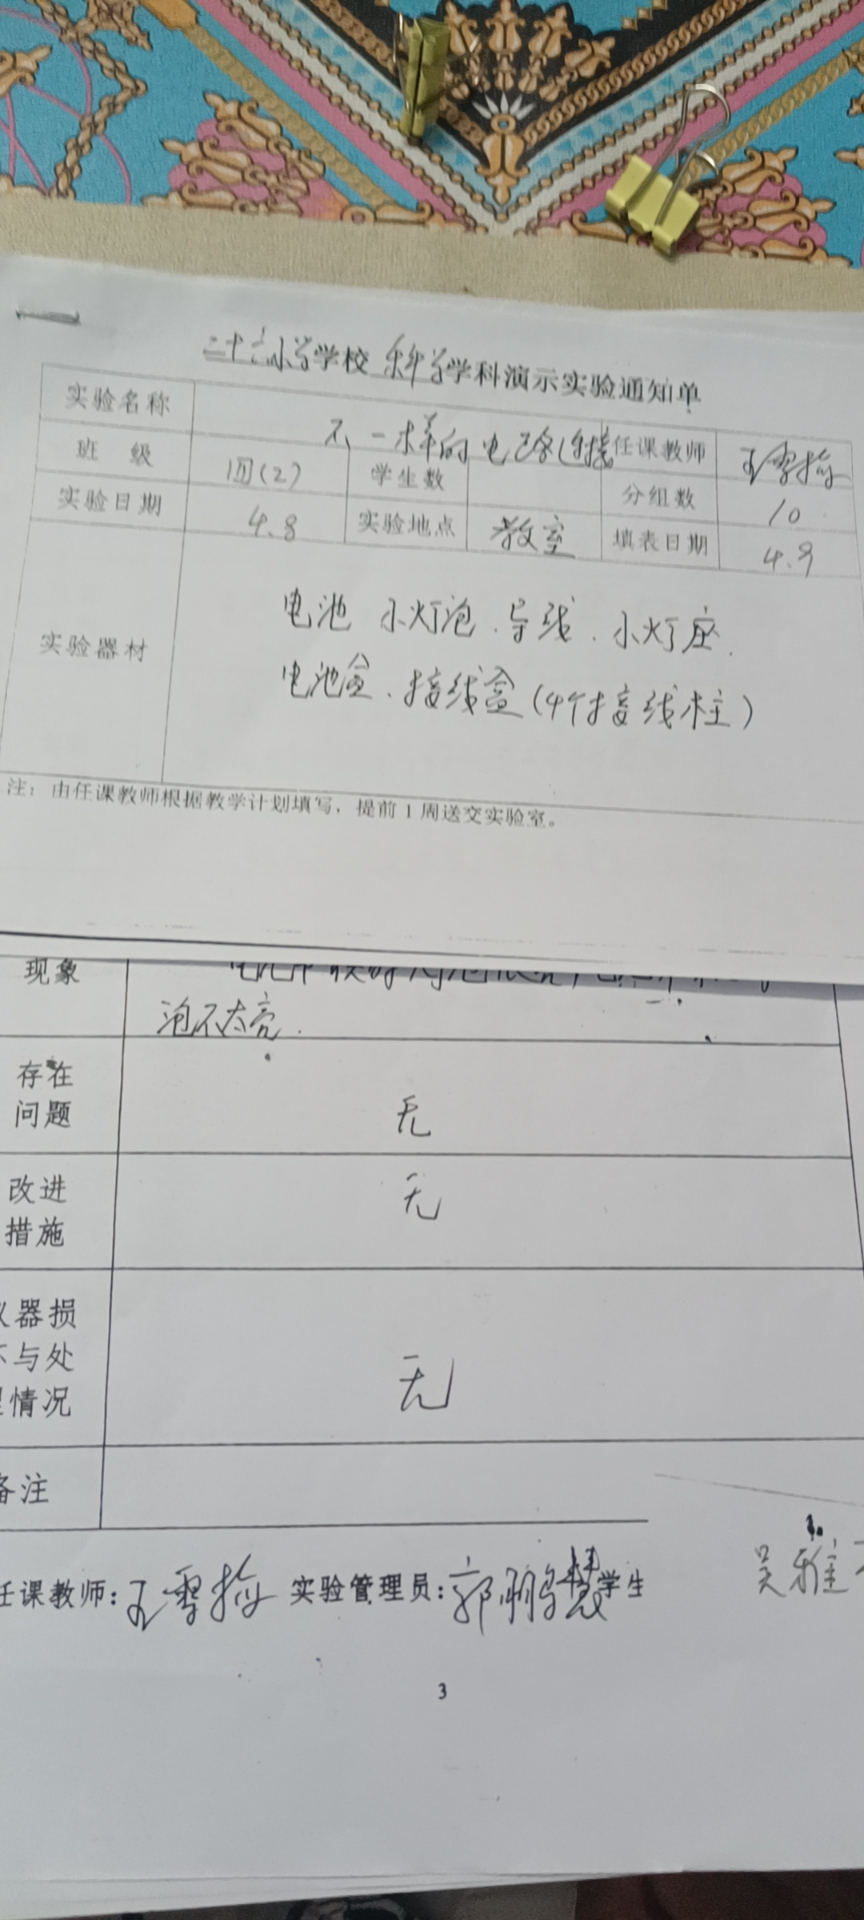 二十六小学学校 科学学科演示实验通知单
实验名称 不一样的电路连接
班 级 四(2) 学生数 任课教师 王雪梅
实验日期 4.8 实验地点 教室 分组数 10
填表日期 4.9
实验器材 电池 小灯泡、导线、小灯座.
电池盒、接线盒(4个接线柱)
注：由任课教师根据教学计划填写，提前1周送交实验室。
现象
泡不太亮.
存在
问题 无
改进
措施 无
器损
与处
情况 无
备注
任课教师：王雪梅 实验管理员：郭鹏慧 学生 吴雅
3